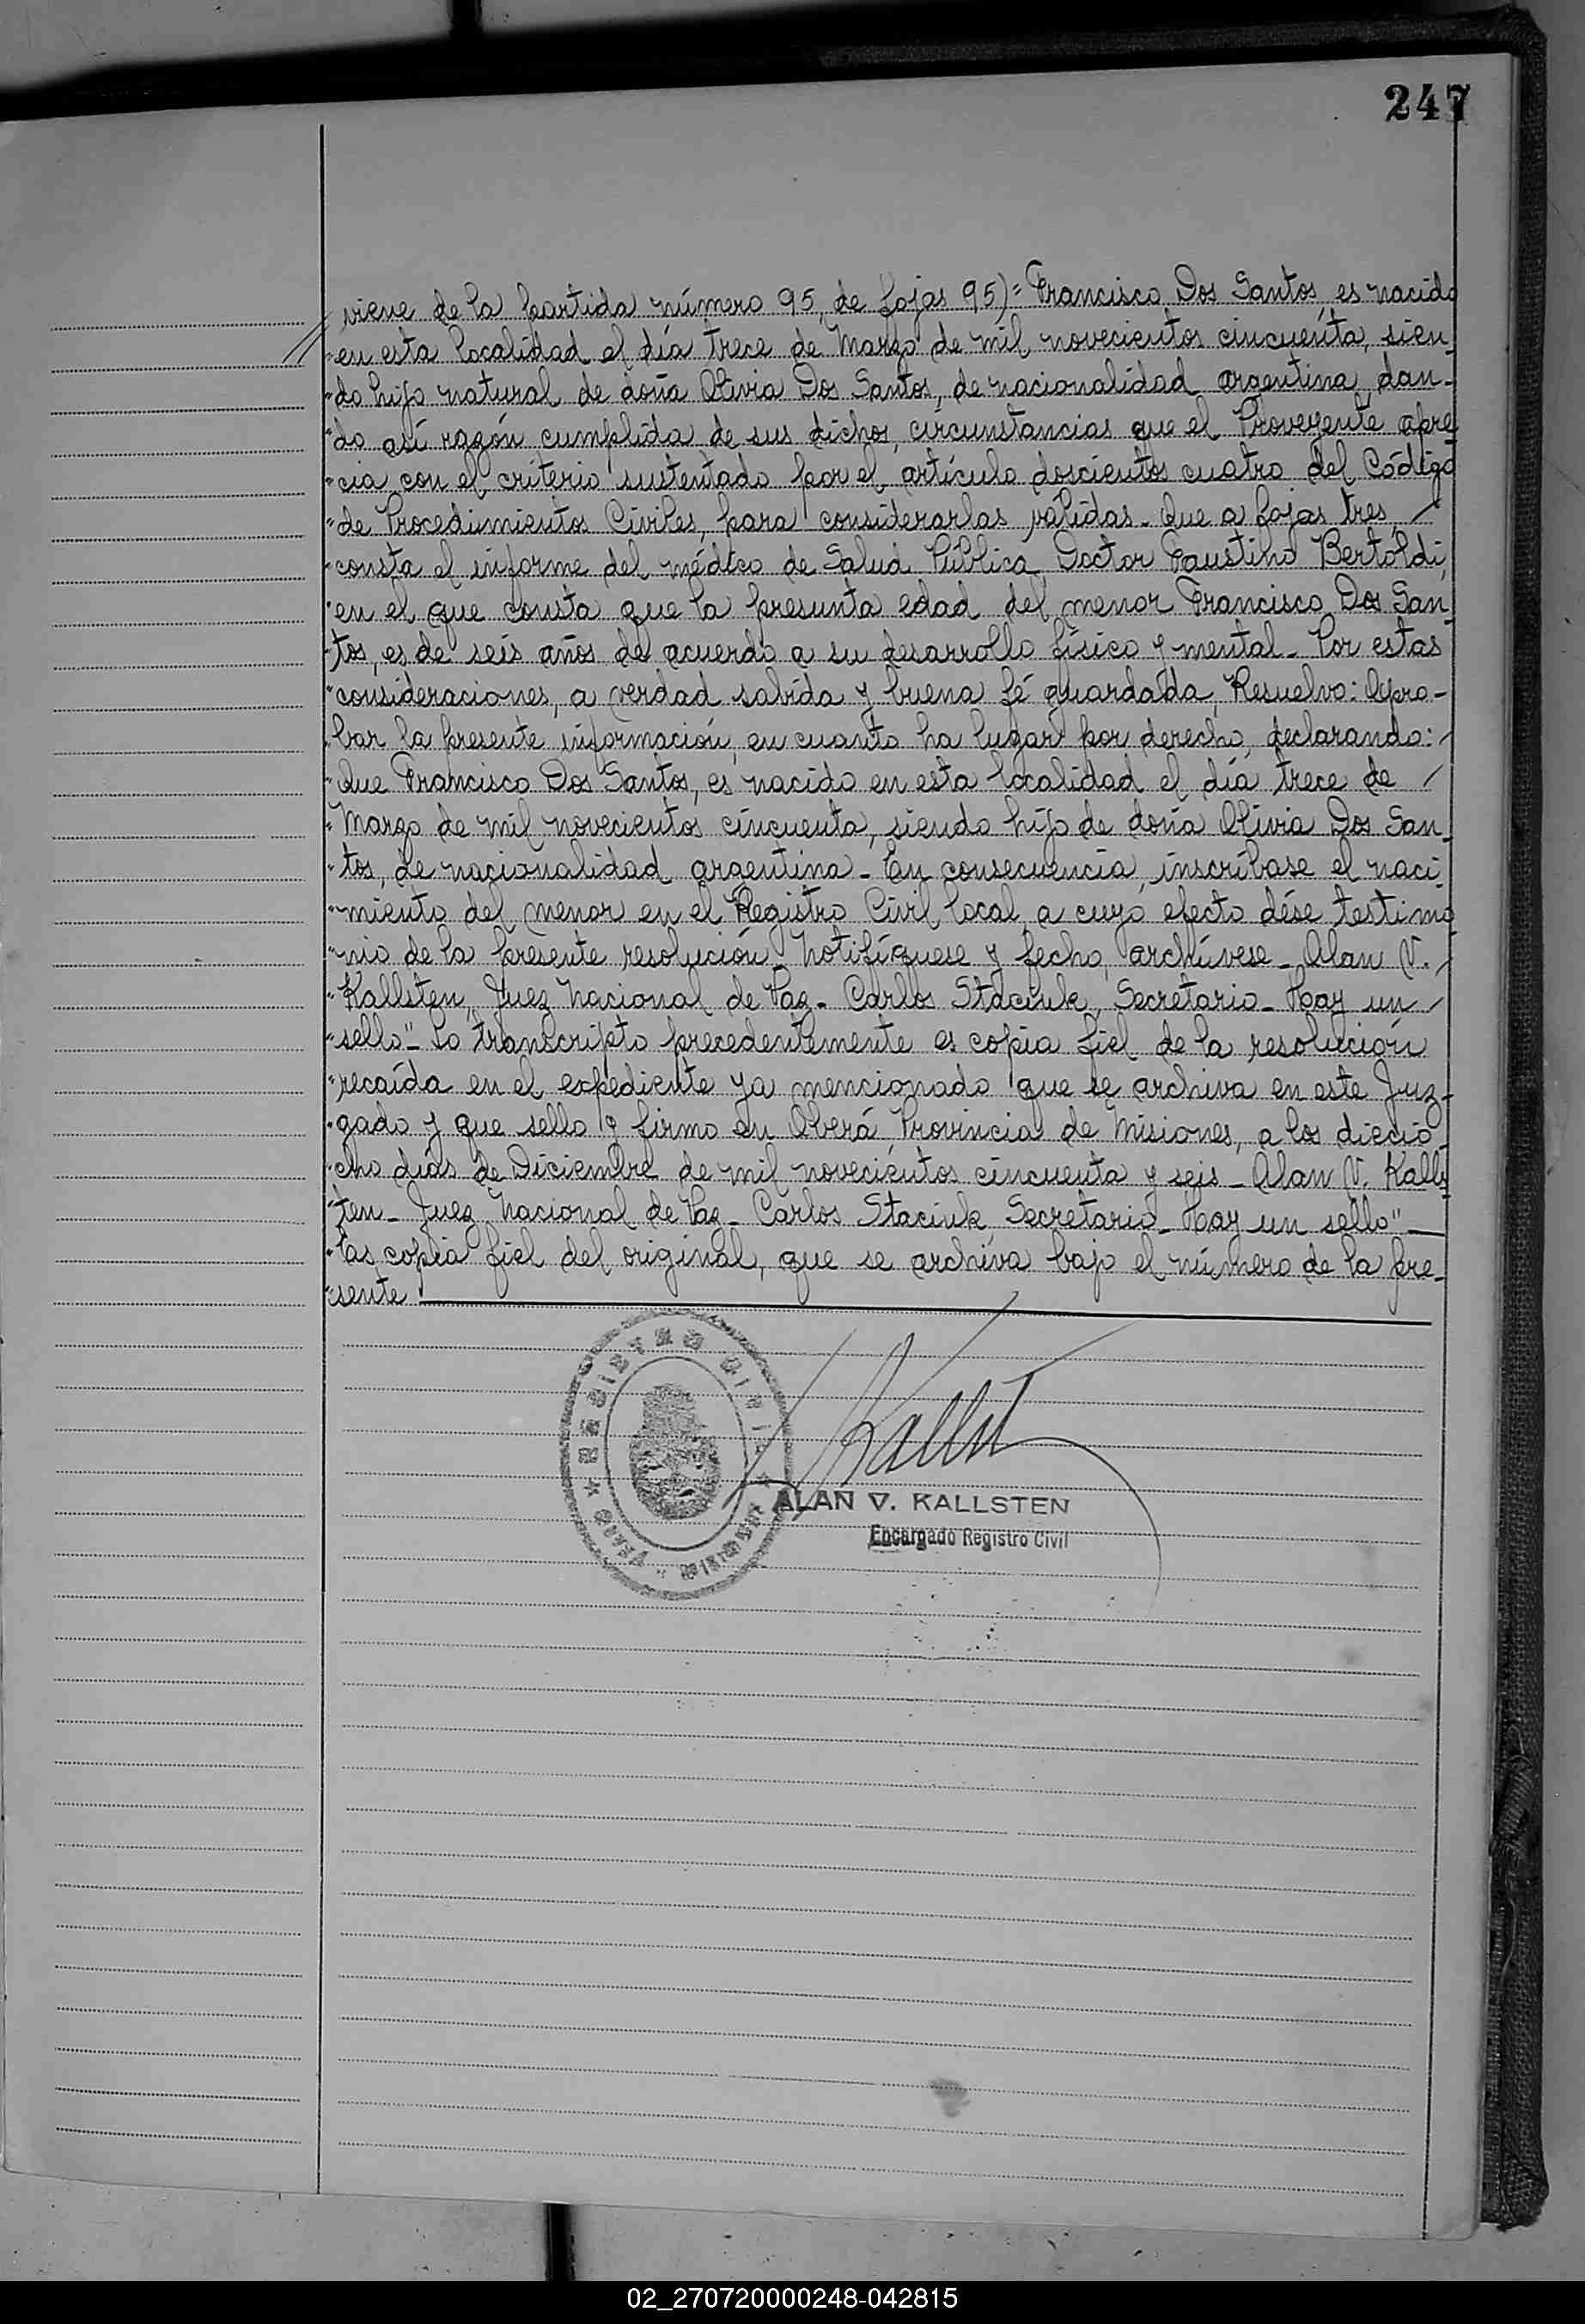 247
viene de la partida número 95, de fojas 95)= Francisco Dos Santos, es nacido
"en esta localidad el día trece de Marzo de mil novecientos cincuenta, sien-
"do hijo natural de doña Olivia Dos Santos, de nacionalidad argentina, dan-
"do así razón cumplida de sus dichos, circunstancias que el Proveyente apre
"cia con el criterio sustentado por el artículo doscientos cuatro del Código
"de Procedimientos Civiles, para considerarlas válidas. Que a fojas tres, /
"consta el informe del médico de Salud Pública, Doctor Faustino Bertoldi,
"en el que consta que la presunta edad del menor Francisco Dos San
"tos, es de seis años de acuerdo a su desarrollo físico y mental. Por estas
"consideraciones, a verdad sabida y buena fé guardada, Resuelvo: Apro-
"bar la presente información, en cuanto ha lugar por derecho, declarando: /
"Que Francisco Dos Santos, es nacido en esta localidad el día trece de /
"Marzo de mil novecientos cincuenta, siendo hijo de doña Olivia Dos San_
"tos, de nacionalidad argentina. En consecuencia, inscríbase el naci_
"miento del menor en el Registro Civil local, a cuyo efecto dése testimo
"nio de la presente resolución. Notifíquese y fecho, archívese. Alan V. /
"Kallsten, Juez Nacional de Paz. Carlos Staciuk, Secretario. Hay un /
"sello". Lo transcripto precedentemente es copia fiel de la resolución
"recaída en el expediente ya mencionado que se archiva en este Juz-
"gado y que sello y firmo en Oberá, Provincia de Misiones, a los diecio
"cho días de Diciembre de mil novecientos cincuenta y seis. Alan V. Kalls
"ten. Juez Nacional de Paz. Carlos Staciuk Secretario. Hay un sello"
"Es copia fiel del original, que se archiva bajo el número de la pre_
"sente
REGISTRO CIVIL
OBERA MISIONES
ALAN V. KALLSTEN
Encargado Registro Civil
02_270720000248-042815